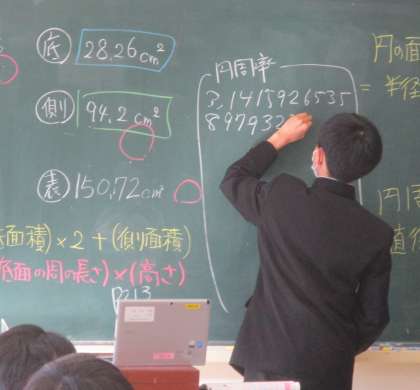 底 28.26cm²
側 94.2cm²
表 150.72cm²
底面積)×2+(側面積)
底面の周の長さ)×(高さ)
P213
円周率
3.1415926535
8979323
円の面
=半径
円周
直径